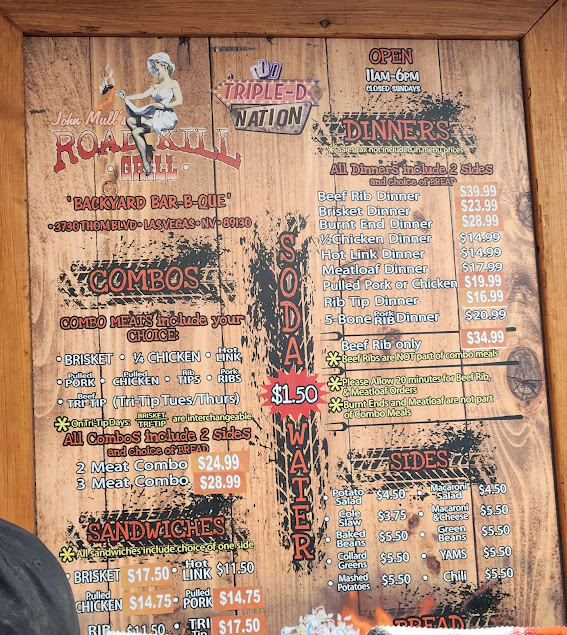 John Mull's
ROAD KILL
• GRILL •
"BACKYARD BAR-B-QUE"
• 3730 THOM BLVD • LAS VEGAS • NV • 89130
DDD
TRIPLE-D
NATION
OPEN
11AM-6PM
CLOSED SUNDAYS
COMBOS
COMBO MEATS include your
CHOICE:
• BRISKET • ¼ CHICKEN • Hot LINK
• Pulled PORK • Pulled CHICKEN • Rib TIPS • Pork RIBS
• Beef TRI-TIP (Tri-Tip Tues/Thurs)
* On Tri-Tip Days: BRISKET TRI-TIP are interchangeable
All Combos include 2 Sides
and choice of BREAD
2 Meat Combo $24.99
3 Meat Combo $28.99
SANDWICHES
* All sandwiches include choice of one side
• BRISKET $17.50 • Hot LINK $11.50
Pulled CHICKEN $14.75 • Pulled PORK $14.75
RIB $11.50 • TRI Tip $17.50
SODA
$1.50
WATER
DINNERS
Sales tax not included in menu prices
All Dinners include 2 Sides
and choice of BREAD
Beef Rib Dinner $39.99
Brisket Dinner $23.99
Burnt End Dinner $28.99
½ Chicken Dinner $14.99
Hot Link Dinner $14.99
Meatloaf Dinner $17.99
Pulled Pork or Chicken $19.99
Rib Tip Dinner $16.99
5-Bone Pork RIB Dinner $20.99
Beef Rib only $34.99
* Beef Ribs are NOT part of combo meals
* Please Allow 20 minutes for Beef Rib,
& Meatloaf Orders
* Burnt Ends and Meatloaf are not part
of Combo Meals
SIDES
• Potato Salad $4.50 • Macaroni Salad $4.50
• Cole Slaw $3.75 • Macaroni & Cheese $5.50
• Baked Beans $5.50 • Green Beans $5.50
• Collard Greens $5.50 • YAMS $5.50
• Mashed Potatoes $5.50 • Chili $5.50
BREAD